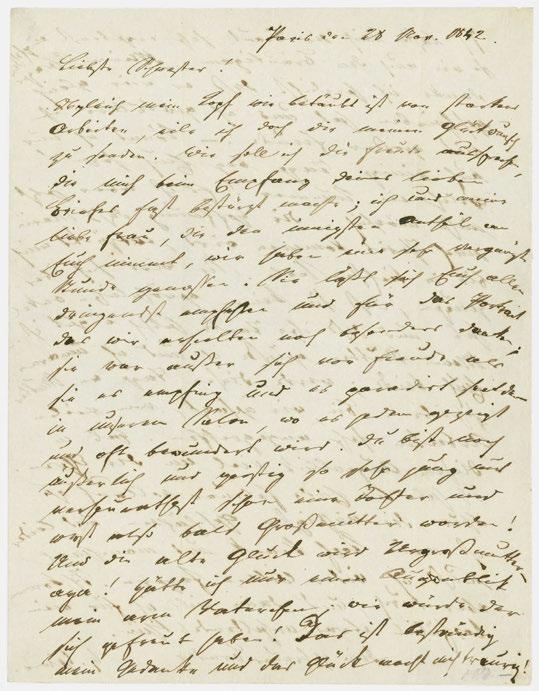 Paris den 28 Nov. 1842.
Liebste Schwester!
Obgleich mein Kopf wie betäubt ist von starkem
Arbeiten, eile ich doch dir meinen Glückwunsch
zu senden. Wie soll ich die Freude aussprechen,
die mich beim Empfang deines lieben
Briefes fast bestürzt machte; ich und meine
liebe Frau, die den innigsten Antheil an
Euch nimmt, wir haben eine sehr vergnügte
Stunde genossen. Sie läßt sich Euch allen
dringendst empfehlen und für das Portrait
das wir erhielten noch besonders danken,
sie war außer sich vor Freude als
sie es empfing und es paradirt seitdem
in unserem Salon, wo es jedem gezeigt
und oft bewundert wird. Du bist noch
äußerlich und geistig so sehr jung und
verheurathest schon eine Tochter und
wirst also bald Großmutter werden!
Und die alte Glück wird Urgroßmutter
Hätte ich nur einen Augenblick
mein arm Vaterchen, wie würde der
sich gefreut haben! Das ist beständig
mein Gedanke und das Glück macht mich traurig!